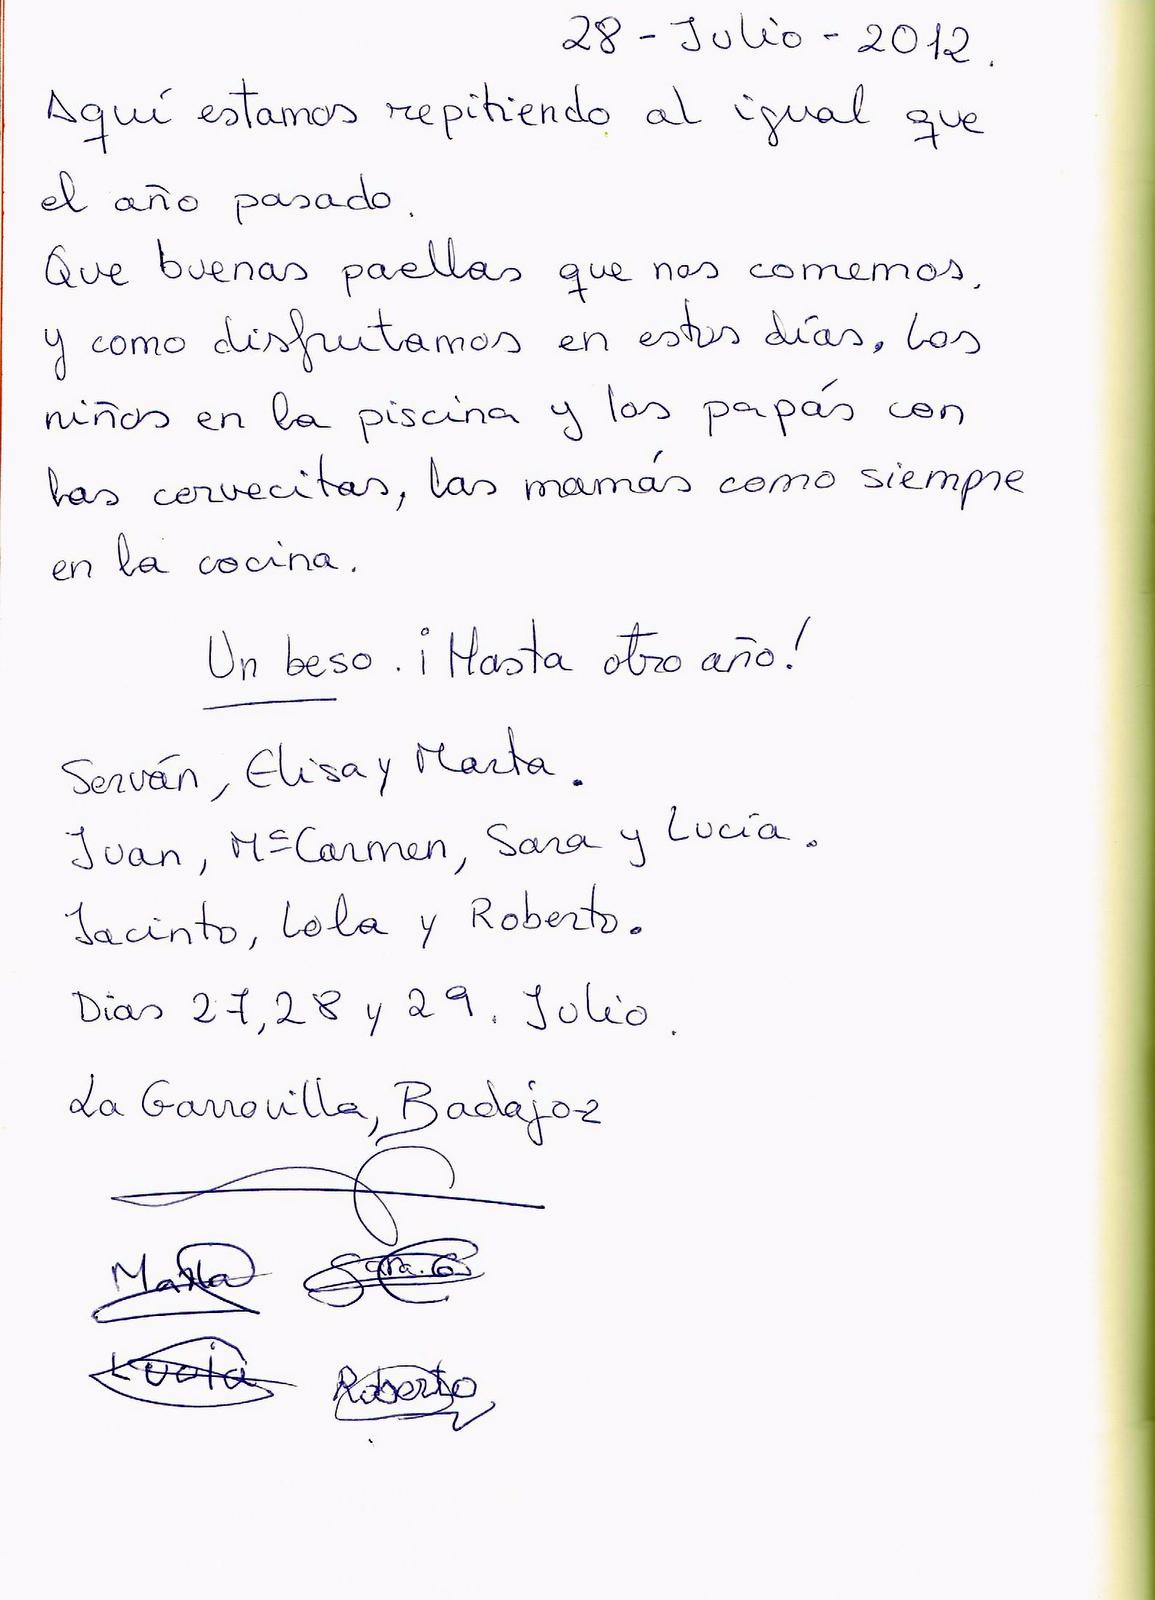 28 - Julio - 2012.
Aquí estamos repitiendo al igual que
el año pasado.
Que buenas paellas que nos comemos,
y como disfrutamos en estos días, los
niños en la piscina y los papás con
las cervecitas, las mamás como siempre
en la cocina.
Un beso. ¡Hasta otro año!
Serván, Elisa y Marta.
Juan, Mª Carmen, Sara y Lucía.
Jacinto, Lola y Roberto.
Dias 27, 28 y 29. Julio.
La Garrovilla, Badajoz
Marta Sara.G
Lucía Roberto